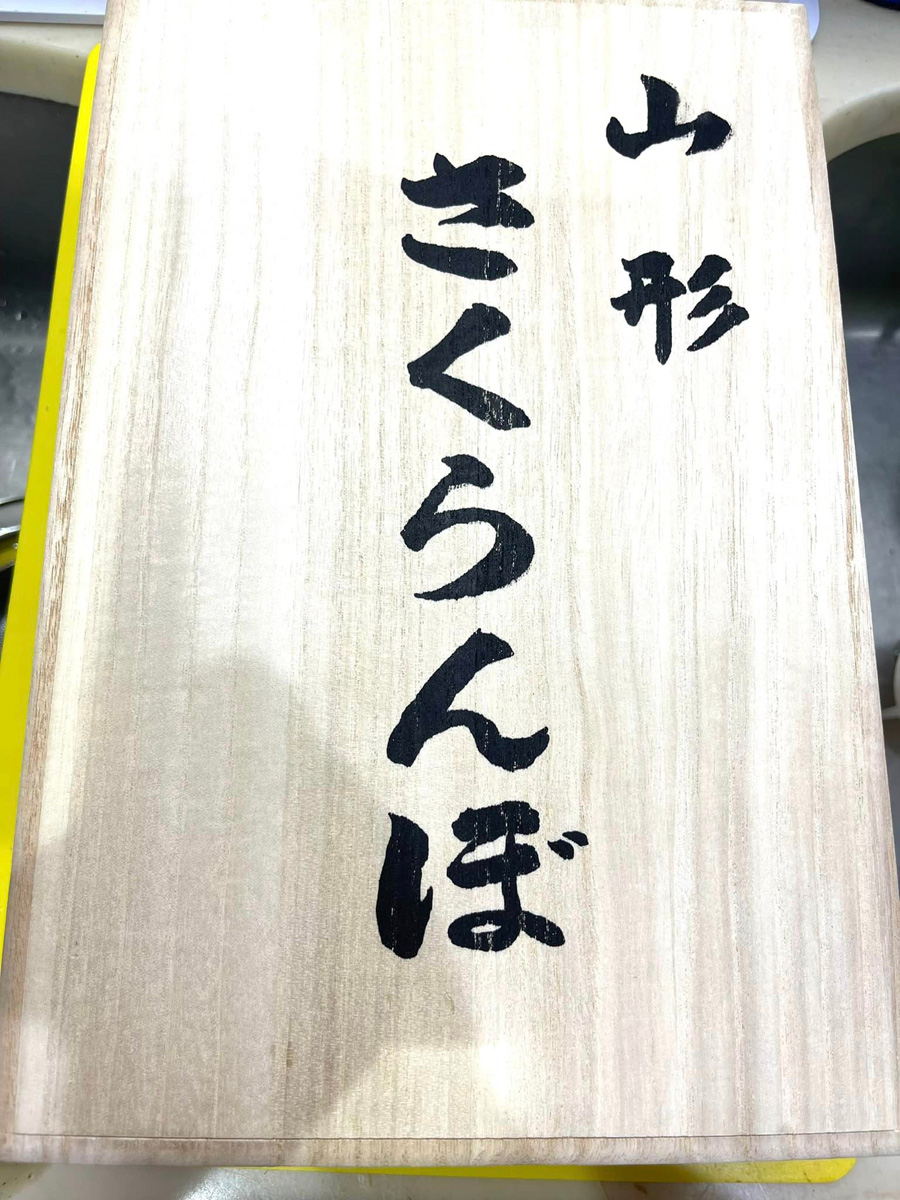 山形
さくらんぼ